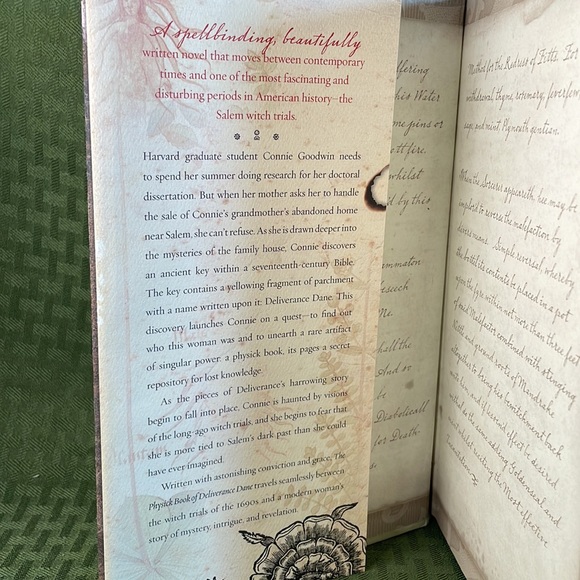 A spellbinding, beautifully
written novel that moves between contemporary
times and one of the most fascinating and
disturbing periods in American history—the
Salem witch trials.
Harvard graduate student Connie Goodwin needs
to spend her summer doing research for her doctoral
dissertation. But when her mother asks her to handle
the sale of Connie's grandmother's abandoned home
near Salem, she can't refuse. As she is drawn deeper into
the mysteries of the family house, Connie discovers
an ancient key within a seventeenth-century Bible.
The key contains a yellowing fragment of parchment
with a name written upon it: Deliverance Dane. This
discovery launches Connie on a quest—to find out
who this woman was and to unearth a rare artifact
of singular power: a physick book, its pages a secret
repository for lost knowledge.
As the pieces of Deliverance's harrowing story
begin to fall into place, Connie is haunted by visions
of the long-ago witch trials, and she begins to fear that
she is more tied to Salem's dark past than she could
have ever imagined.
Written with astonishing conviction and grace, The
Physick Book of Deliverance Dane travels seamlessly between
the witch trials of the 1690s and a modern woman's
story of mystery, intrigue, and revelation.
his Water
me pins or
whilst
d by this
hall the
And so
be
Diabolicall
for Death
Method for the Redress of Fitts. For
thyme, rosemary, feverfew,
sage and mint
When the Sorcerer appeareth, he may be
implored to reverse the malefaction by
Simple reversal whereby
the bottle its contents be placed in a pot
upon the fyre with not more than three feet
combined with stinging
Nettle and ground roote of Mandrake
altogether to bring his bewitchment back